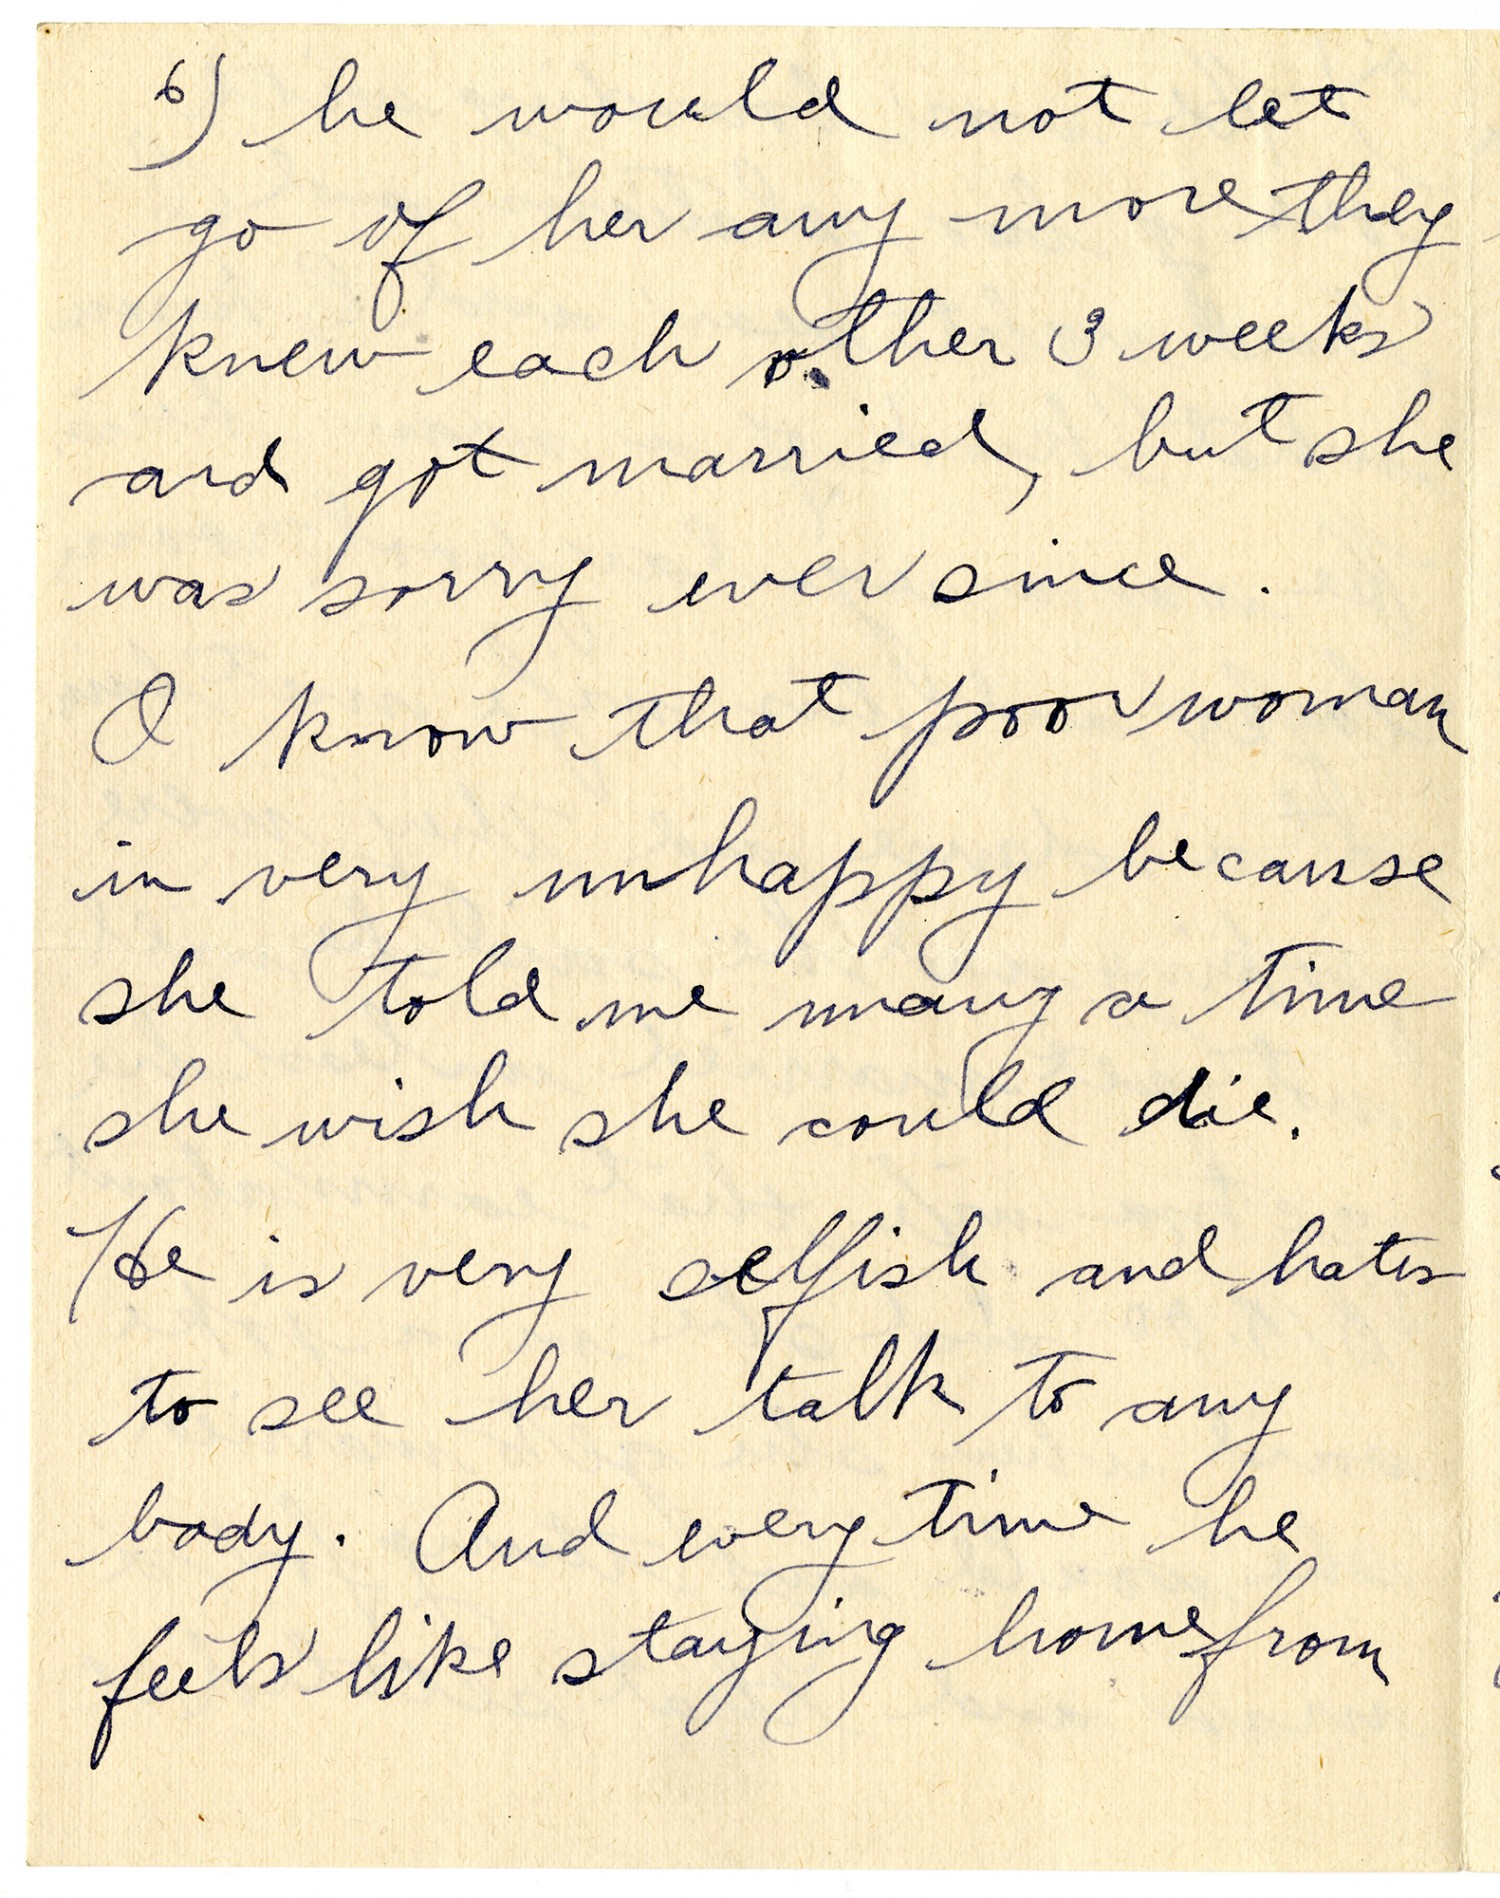 6) he would not let
go of her any more they
knew each other 3 weeks
and got married, but she
was sorry ever since.
I know that poor woman
in very unhappy because
she told me many a time
she wish she could die.
He is very selfish and hates
to see her talk to any
body. And every time he
feels like staying home from